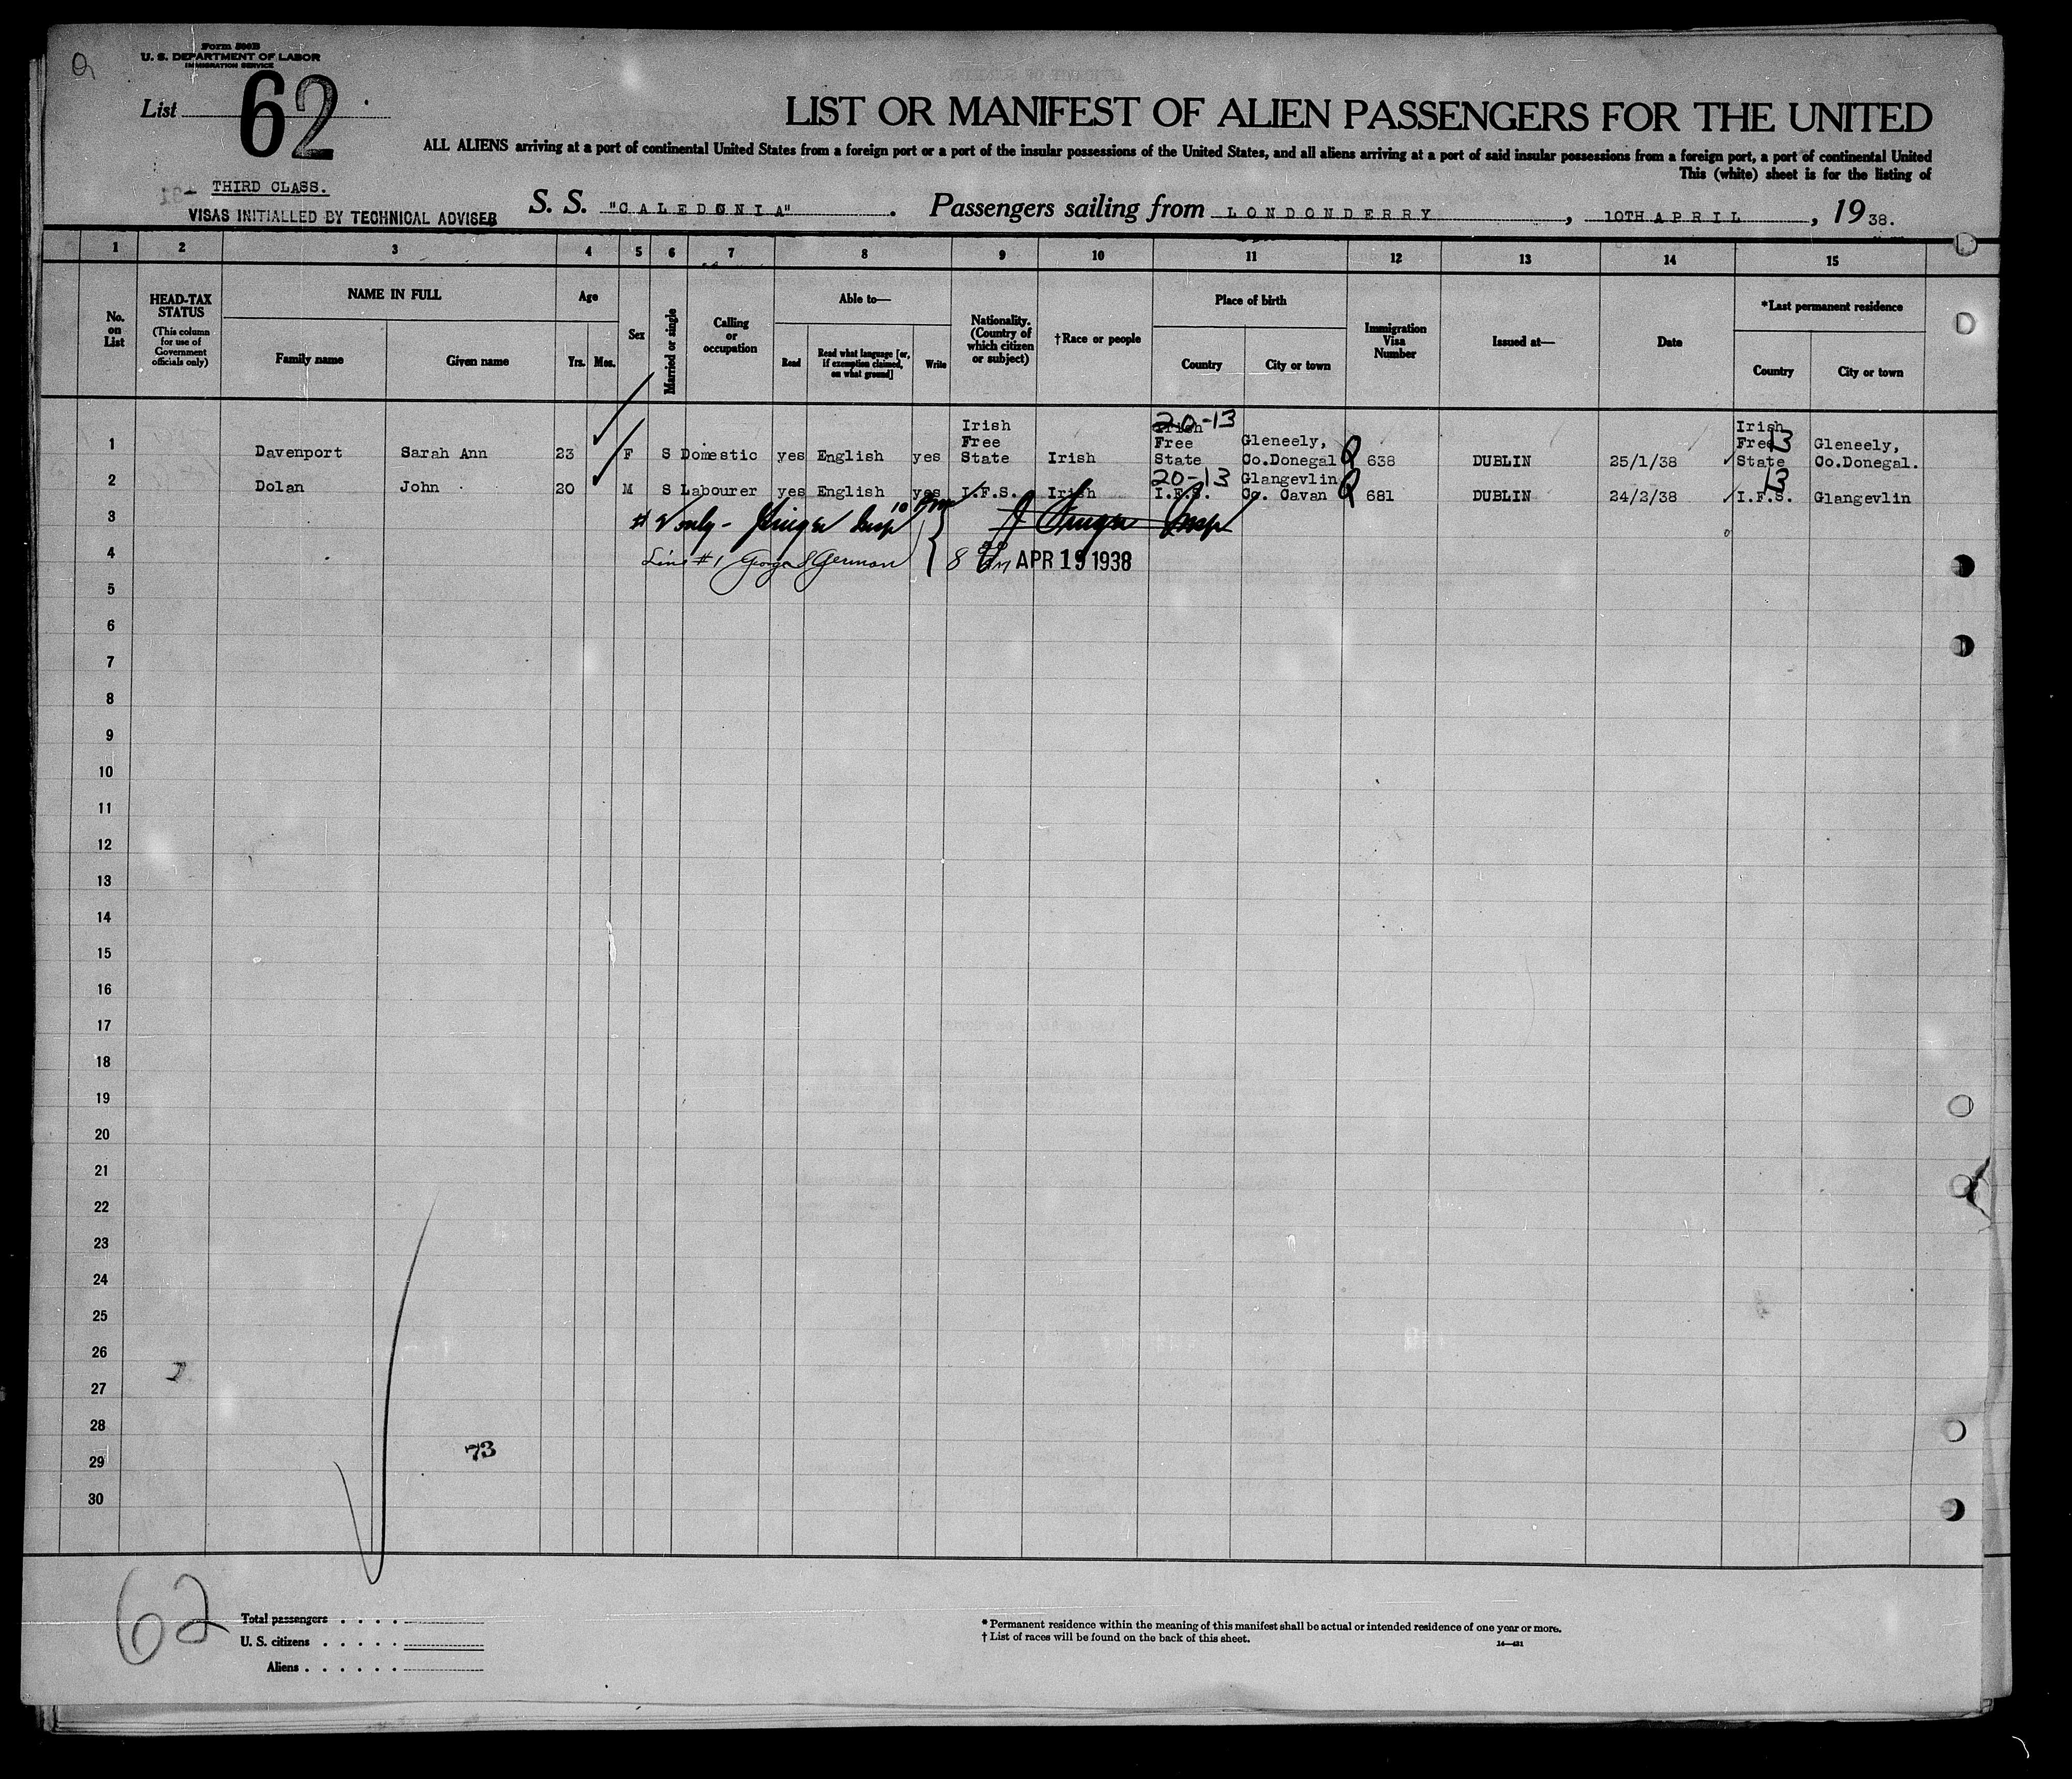 Form 500B
U. S. DEPARTMENT OF LABOR
IMMIGRATION SERVICE
List 62
LIST OR MANIFEST OF ALIEN PASSENGERS FOR THE UNITED
ALL ALIENS arriving at a port of continental United States from a foreign port or a port of the insular possessions of the United States, and all aliens arriving at a port of said insular possessions from a foreign port, a port of continental United
This (white) sheet is for the listing of
THIRD CLASS.
VISAS INITIALLED BY TECHNICAL ADVISER
S. S. "CALEDONIA". Passengers sailing from LONDONDERRY, 10TH APRIL, 1938.
1 2 3 4 5 6 7 8 9 10 11 12 13 14 15
No. on List
HEAD-TAX STATUS
(This column for use of Government officials only)
NAME IN FULL
Family name
Given name
Age
Yrs. Mos.
Sex
Married or single
Calling or occupation
Able to—
Read
Read what language [or, if exemption claimed, on what ground]
Write
Nationality. (Country of which citizen or subject)
†Race or people
Place of birth
Country
City or town
Immigration Visa Number
Issued at—
Date
*Last permanent residence
Country
City or town
20-13
1 Davenport Sarah Ann 23 F S Domestic yes English yes Irish Free State Irish Irish Free State Gleneely, Co.Donegal Q 638 DUBLIN 25/1/38 Irish Free State 13 Gleneely, Co.Donegal.
20-13
2 Dolan John 20 M S Labourer yes English yes I.F.S. Irish I.F.S. Glangevlin Co. Cavan Q 681 DUBLIN 24/2/38 I.F.S. 13 Glangevlin
3 only - Insp Insp
4 Line #1 German 8 APR 19 1938
5
6
7
8
9
10
11
12
13
14
15
16
17
18
19
20
21
22
23
24
25
26
27
28
29
30
73
62
Total passengers . . . .
U. S. citizens . . . . .
Aliens . . . . . .
* Permanent residence within the meaning of this manifest shall be actual or intended residence of one year or more.
† List of races will be found on the back of this sheet.